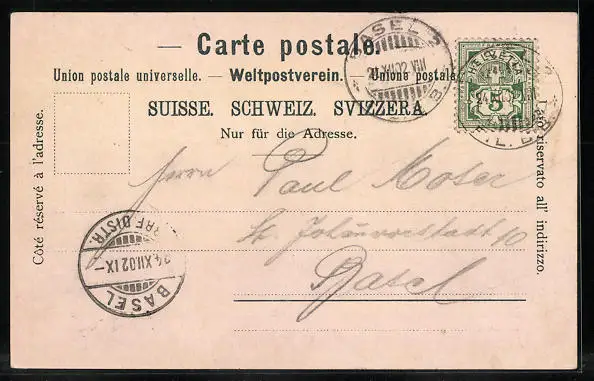 — Carte postale. —
Union postale universelle. — Weltpostverein. — Unione postale
SUISSE. SCHWEIZ. SVIZZERA.
Nur für die Adresse.
Côté réservé à l'adresse.
Lato riservato all' indirizzo.
Herrn Paul Moser
St. Johannvorstadt 10
Basel
BASEL 2
HELVETIA
5
BASEL
24.XII.02 IX—
BRF. DISTR.